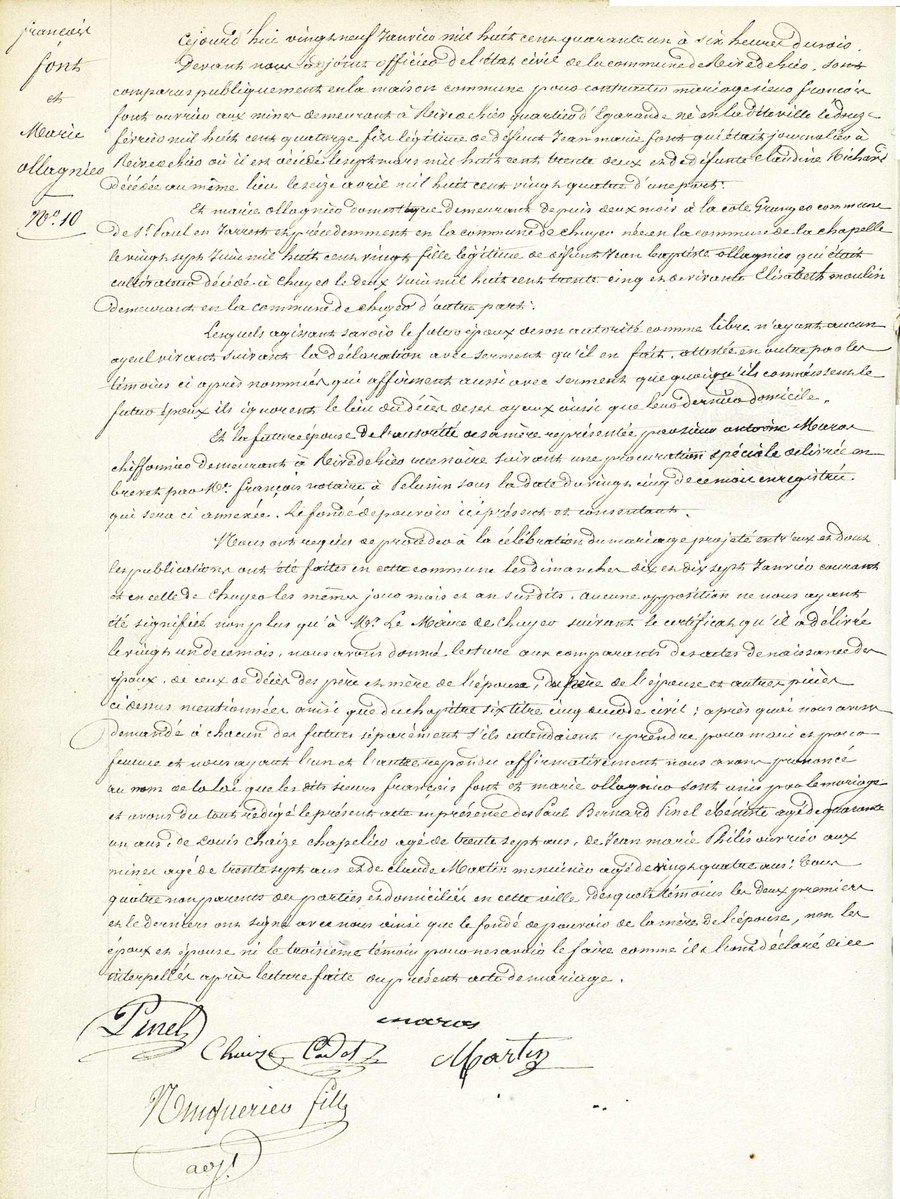 françois
font
et
Marie
ollagnier
No. 10
Cejourd'hui vingt neuf Janvier mil huit cent quarante un à six heures du soir.
Devant nous adjoint officier de l'état civil de la commune de Rivedegier. sont
comparus publiquement en la maison commune pour contracter mariage sieur françois
font ouvrier aux mines demeurant à Rivedegier quartier d'Egarande né en la dite ville le douze
février mil huit cent quatorze fils légitime de défunt Jean marie font qui était journalier à
Rivedegier où il est décédé le sept mars mil huit cent trente deux et de défunte claudine Richard
décédée au même lieu le seize avril mil huit cent vingt quatre d'une part.
Et marie ollagnier domestique demeurant depuis deux mois à la cote Granger commune
de St. Paul en Jarrest et précédemment en la commune de chuyer née en la commune de la chapelle
le vingt sept Juin mil huit cent vingt fille légitime de défunt Jean baptiste ollagnier qui était
cultivateur décédé à chuyer le deux Juin mil huit cent trente cinq et de vivante Elisabeth moulin
demeurant en la commune de chuyer d'autre part.
Lesquels agissant savoir le futur époux de son autorité comme libre n'ayant aucun
ayeul vivant suivant la déclaration avec serment qu'il en fait, attestée en outre par les
témoins ci après nommés qui affirment aussi avec serment que quoiqu'ils connaissent le
futur époux ils ignorent le lieu du décès de ses ayeux ainsi que leur dernier domicile.
Et la future épouse de l'autorité de sa mère représentée par sieur antoine Maras
chiffonnier demeurant à Rivedegier suivant une procuration spéciale délivrée en
brevet par Me. françois notaire à Pelussin sous la date du vingt cinq de ce mois enregistrée.
qui sera ci annexée. Le fondé de pouvoir ici présent et consentant.
Nous ont requis de procéder à la célébration du mariage projeté entr'eux et dont
les publications ont été faites en cette commune les dimanches dix et dix sept Janvier courant
et en celle de Chuyer les mêmes jour mois et an susdits. aucune opposition ne nous ayant
été signifiée non plus qu'à Mr. Le Maire de Chuyer suivant le certificat qu'il a délivré
le vingt un de ce mois, nous avons donné lecture aux comparants des actes de naissance des
époux, de ceux de décès des père et mère de l'époux, du père de l'épouse et autres pièces
ci dessus mentionnées ainsi que du chapitre six titre cinq du code civil; après quoi nous avons
demandé à chacun des futurs séparément s'ils entendaient se prendre pour mari et pour
femme et nous ayant l'un et l'autre répondu affirmativement nous avons prononcé
au nom de la loi que les dits sieurs françois font et marie ollagnier sont unis par le mariage
et avons du tout rédigé le présent acte en présence des Paul Bernard Pinel Ebéniste agé de quarante
un ans, de Louis Chaize chapelier agé de trente sept ans, de Jean marie Philis ouvrier aux
mines agé de trente sept ans et de claude Martin menuisier agé de vingt quatre ans; tous
quatre non parents des parties et domiciliés en cette ville desquels témoins les deux premiers
et le dernier ont signé avec nous ainsi que le fondé de pouvoir de la mère de l'épouse, non les
époux et épouse ni le troisième témoin pour ne savoir le faire comme ils l'ont déclaré de ce
interpellés après lecture faite du présent acte de mariage.
Pinel
maras
Chaize Cadet
Martin
fils
adj.t